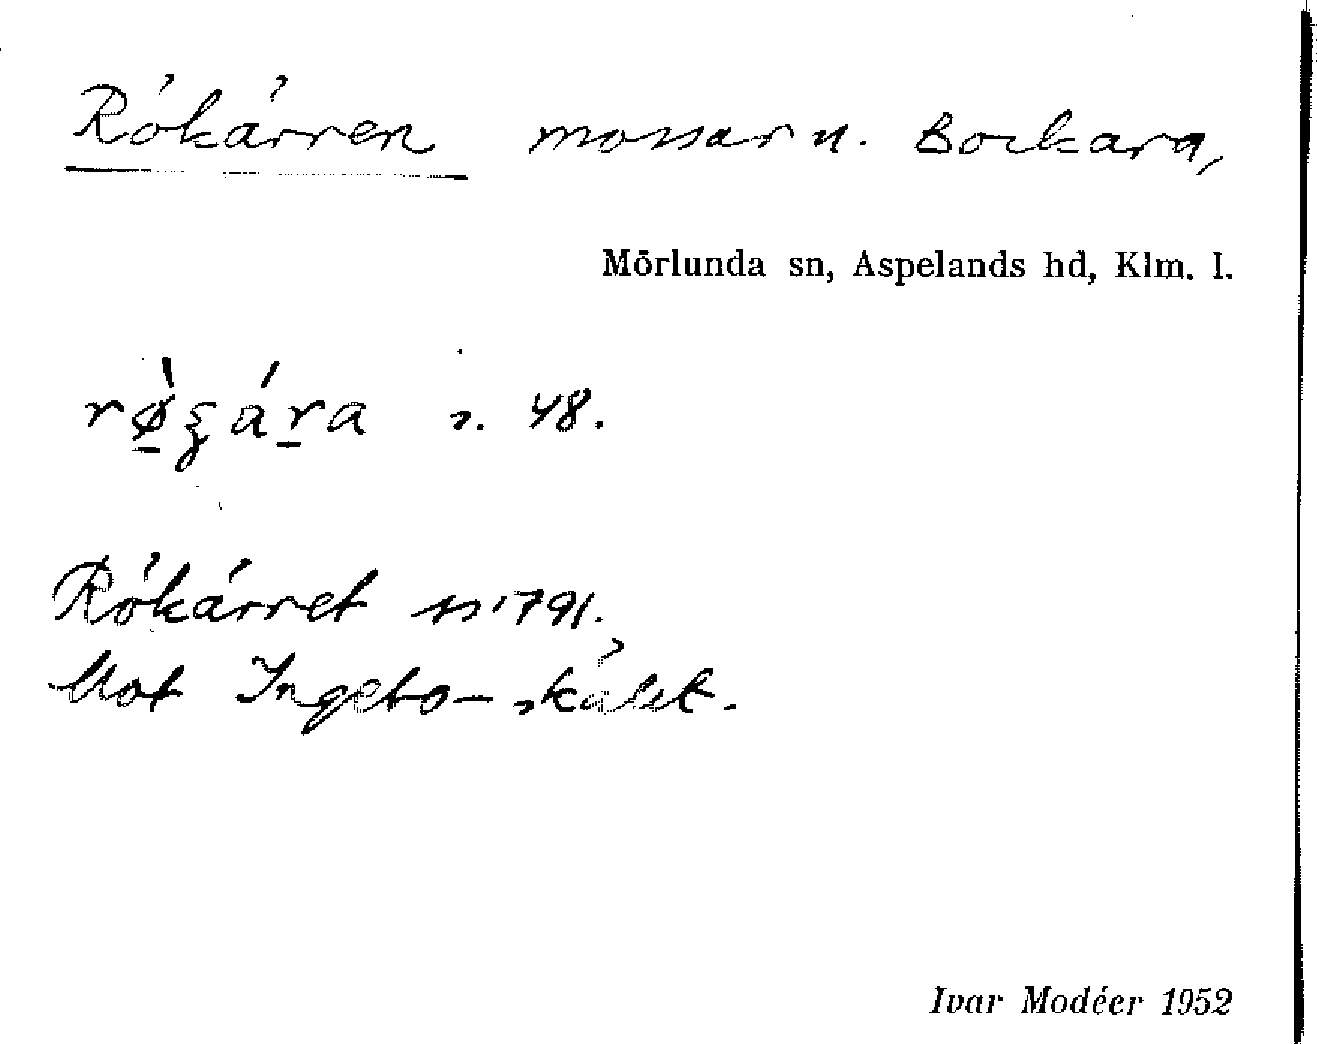 Rökärren mossar u. Bockara,
Mörlunda sn, Aspelands hd, Klm. l.
s. 48.
Rökärret 1791.
Mot Ingebo-skälet.
Ivar Modéer 1952